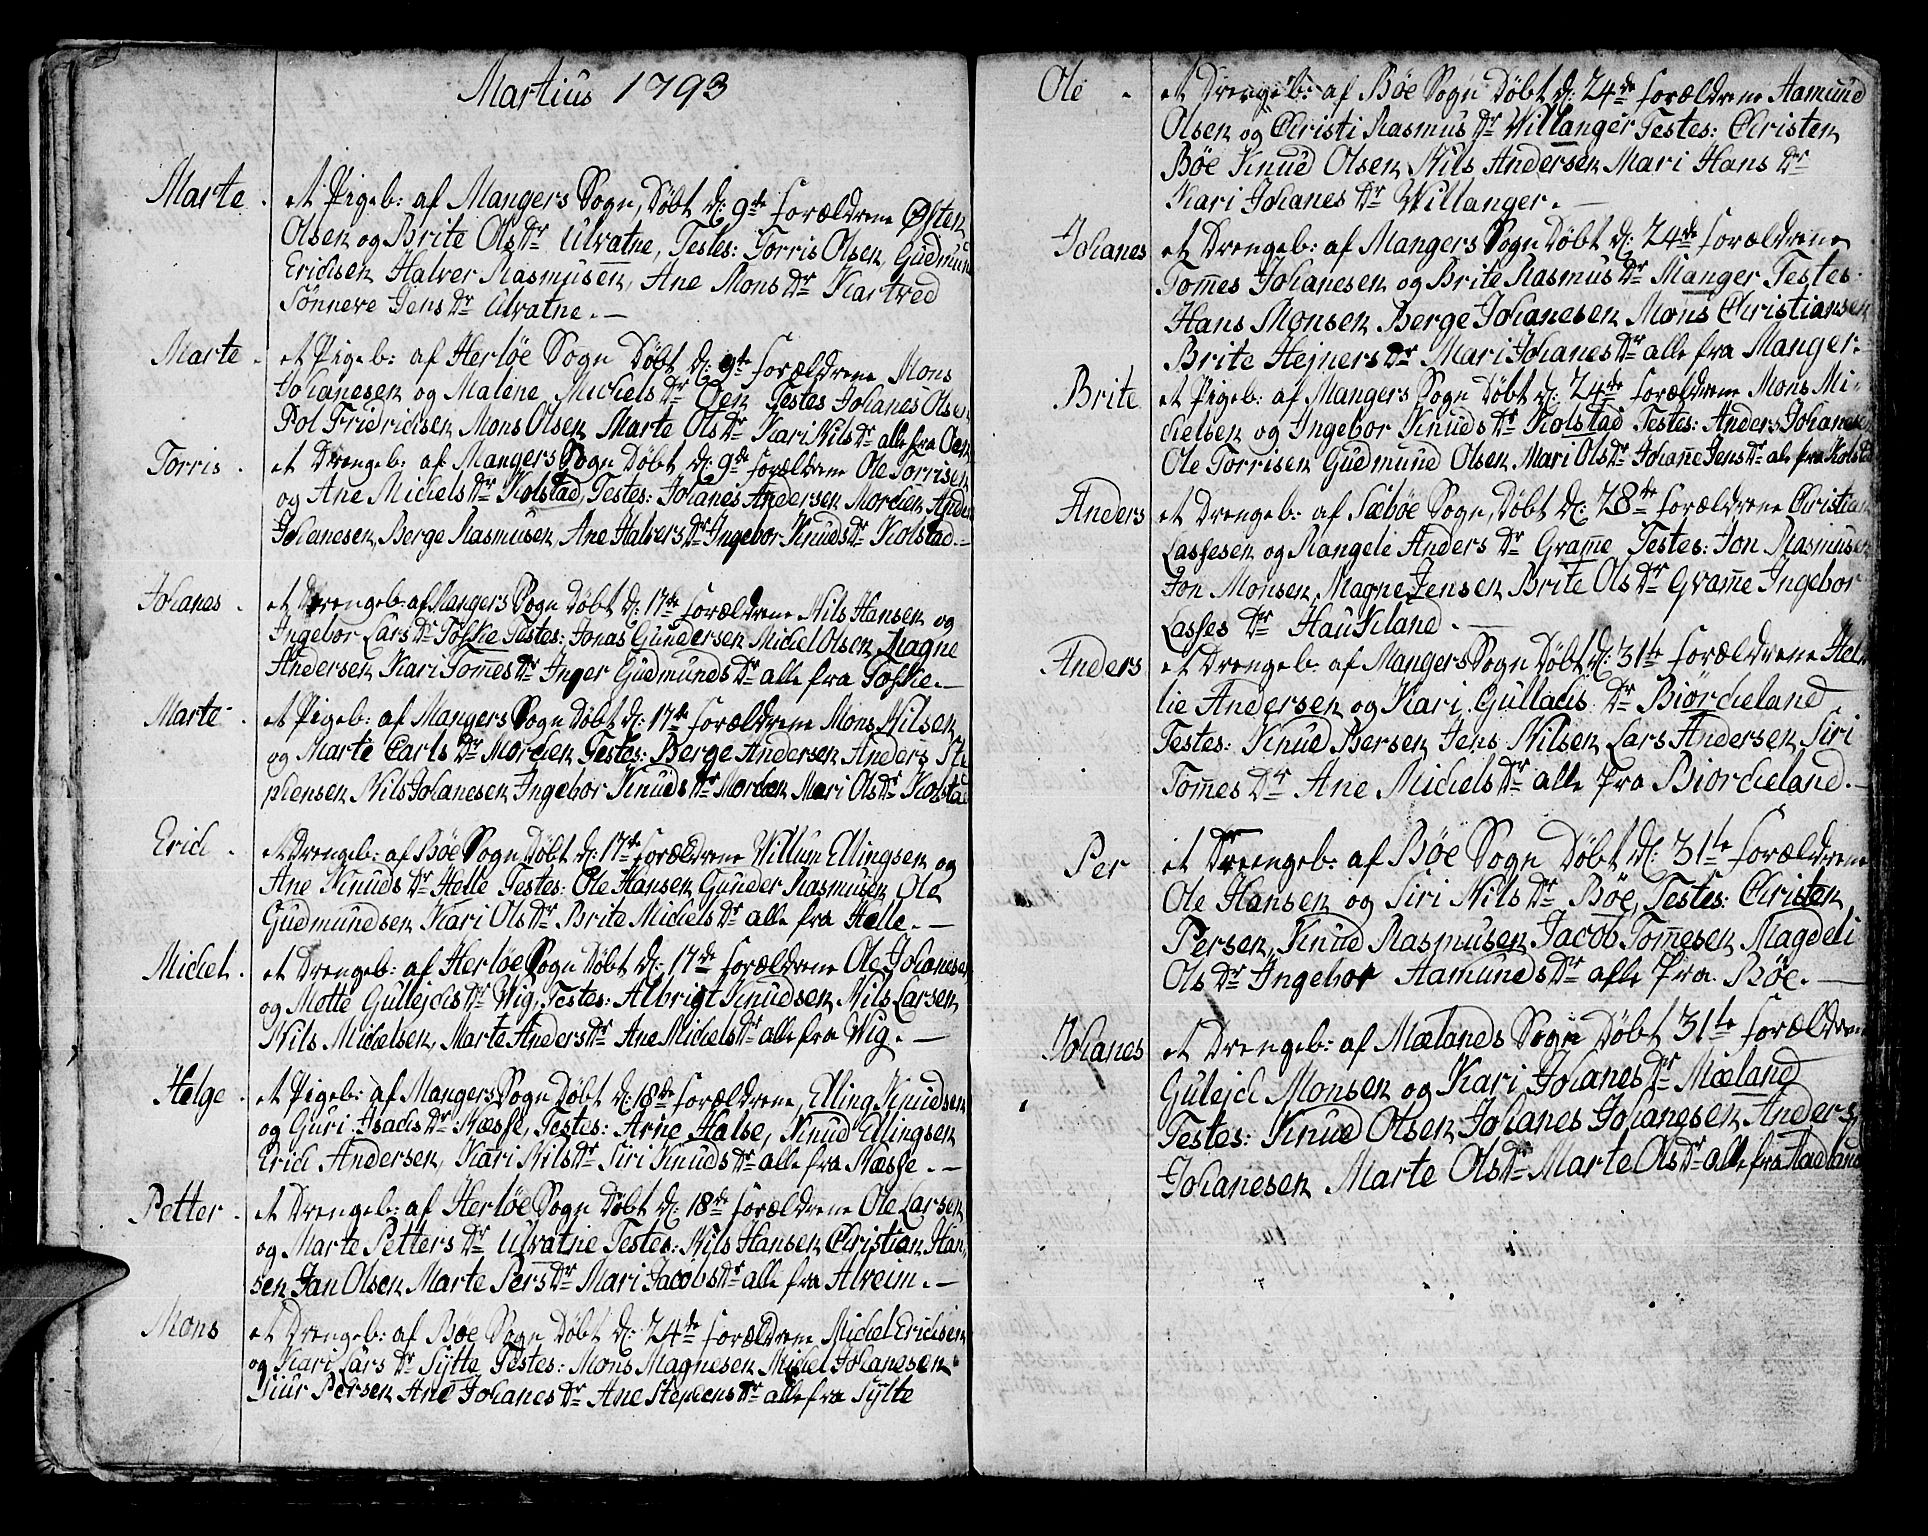 Martius 1793
Marte. et Pigeb: af Mangers Sogn, Døbt d: 9de Forældrene Østen
Olsen og Brite Ols Dr Ulvatne, Testes: Torris Olsen, Gudmun
Erichsen Halver Rasmusen, Ane Mons Dr Kartved
Sønneve Jens Dr Ulvatne. —
Marte. et Pigeb: af Herløe Sogn Døbt d: 9te Forældrene Mons
Johanesen og Malene Michels Dr Oen Testes Johanes Olsen
Pol Fridrichsen Mons Olsen Marte Ols Dr Kari Nils Dr alle fra Oen
Torris. et Drengeb: af Mangers Sogn Døbt d: 9de Forældrene Ole Torrisen
og Ane Michels Dr Kolstad, Testes: Johanes Andersen Morchen Anders
Johanesen, Berge Rasmusen, Ane Halvers Dr Ingebor Knuds Dr Kolstad. —
Johanes. et Drengeb: af Mangers Sogn Døbt d: 17de Forældrene Nils Hansen og
Ingebor Lars Dr Toske Testes: Jonas Gundersen Michel Olsen Magne
Andersen Kari Tommes Dr Inger Gudmunds Dr alle fra Toske. —
Marte. et Pigeb: af Mangers Sogn Døbt d: 17de Forældrene Mons Nilsen
og Marte Carls Dr Morchen Testes: Berge Andersen Anders Ste
phensen Nils Johanesen Ingebor Knuds Dr Morchen Mari Ols Dr Kolstad
Erich. et Drengeb: af Bøe Sogn Døbt d: 17de Forældrene Willum Ellingsen og
Ane Knuds Dr Helle Testes: Ole Hansen Gunder Rasmusen Ole
Gudmundsen Kari Ols Dr Brite Michels Dr alle fra Helle. —
Michel. et Drengeb: af Herløe Sogn Døbt d: 17de Forældrene Ole Johanesen
og Motte Gullejchs Dr Wig, Testes: Albrigt Knudsen Nils Larsen
Nils Michelsen, Marte Anders Dr Ane Michels Dr alle fra Wig. —
Helge. et Pigeb: af Mangers Sogn Døbt d: 18de Forældrene, Elling Knudsen
og Guri Isachs Dr Næsse, Testes: Arne Halse, Knud Ellingsen
Erich Andersen, Kari Nils Dr Siri Knuds Dr alle fra Næsse. —
Petter. et Drengeb: af Herløe Sogn Døbt d: 18de Forældrene Ole Larsen
og Marte Petters Dr Ulvatne Testes: Nils Hansen Christian Han
sen Jan Olsen Marte Pers Dr Mari Jacobs Dr alle fra Alveim. —
Mons et Drengeb: af Bøe Sogn Døbt d: 24de Forældrene Michel Erichsen
og Kari Lars Dr Sylte Testes: Mons Magnesen Michel Johanesen
Siur Persen Ane Johanes Dr Ane Stephens Dr alle fra Sylte
Ole . et Drengeb: af Bøe Sogn Døbt d: 24de Forældrene Aamund
Olsen og Christi Rasmus Dr Willanger Testes: Christen
Bøe Knud Olsen, Nils Andersen Mari Hans Dr
Kari Johanes Dr Willanger. —
Johanes et Drengeb: af Mangers Sogn Døbt d: 24de Forældrene
Tommes Johanesen og Brite Rasmus Dr Manger Testes:
Hans Monsen Berge Johanesen Mons Christiansen
Brite Hejners Dr Mari Johanes Dr alle fra Manger.
Brite et Pigeb: af Mangers Sogn Døbt d: 24de Forældrene Mons Mi-
chelsen og Ingebor Knuds Dr Kolstad Testes: Anders Johanesen
Ole Torrisen Gudmund Olsen, Mari Ols Dr Johanne Jens Dr ale fra Kolstad
Anders et Drengeb: af Sæbøe Sogn, Døbt d: 28de Forældrene Christian
Lassesen og Rangeli Anders Dr Gramme Testes: Jon Rasmusen
Jon Monsen, Magne Jensen Brite Ols Dr Gramme Ingebor
Lasses Dr Haukland. —
Anders et Drengeb: af Mangers Sogn Døbt d: 31te Forældrene Hel
lie Andersen og Kari Gullachs Dr Biørcheland
Testes: Knud Bersen Jens Nilsen Lars Andersen Siri
Tommes Dr Ane Michels Dr alle fra Biørcheland. —
Per et Dreengeb: af Bøe Sogn Døbt d: 31te Forældrene
Ole Hansen og Siri Nils Dr Bøe, Testes: Christen
Persen, Knud Rasmusen Jacob Tommesen Magdeli
Ols Dr Ingebor Aamunds Dr alle fra Bøe. —
Johanes et Drengeb: af Mælands Sogn Døbt 31te Forældrene
Gulejch Monsen og Kari Johanes Dr Mæland
Testes: Knud Olsen Johanes Johanesen Anders
Johanesen Marte Ols Dr Marte Ols Dr alle fra Aadland